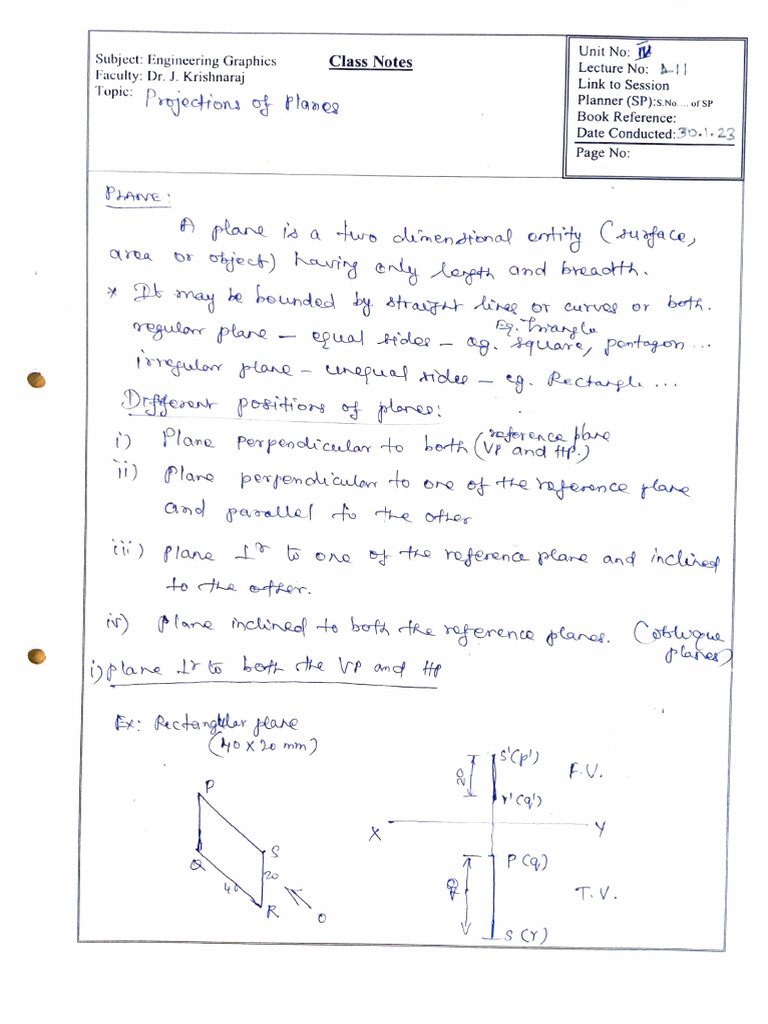 Subject: Engineering Graphics
Faculty: Dr. J. Krishnaraj
Topic: Projections of Planes
Class Notes
Unit No: IV
Lecture No: L11
Link to Session
Planner (SP):S.No.... of SP
Book Reference:
Date Conducted: 30.1.23
Page No:
PLANE:
A plane is a two dimensional entity (surface,
area or object) having only length and breadth.
* It may be bounded by straight lines or curves or both.
Eg. Triangle
regular plane – equal sides – eg. square, pentagon ...
irregular plane – unequal sides – eg. Rectangle ...
Different positions of planes:
i) Plane perpendicular to both (reference plane VP and HP.)
ii) Plane perpendicular to one of the reference plane
and parallel to the other
iii) Plane ⊥r to one of the reference plane and inclined
to the other.
iv) Plane inclined to both the reference planes. (oblique
planes)
i) plane ⊥r to both the VP and HP
Ex: Rectangular plane
(40 x 20 mm)
P
Q
S
R
40
20
O
s'(p')
20
F.V.
r'(q')
X
Y
P (q)
40
T.V.
S (r)